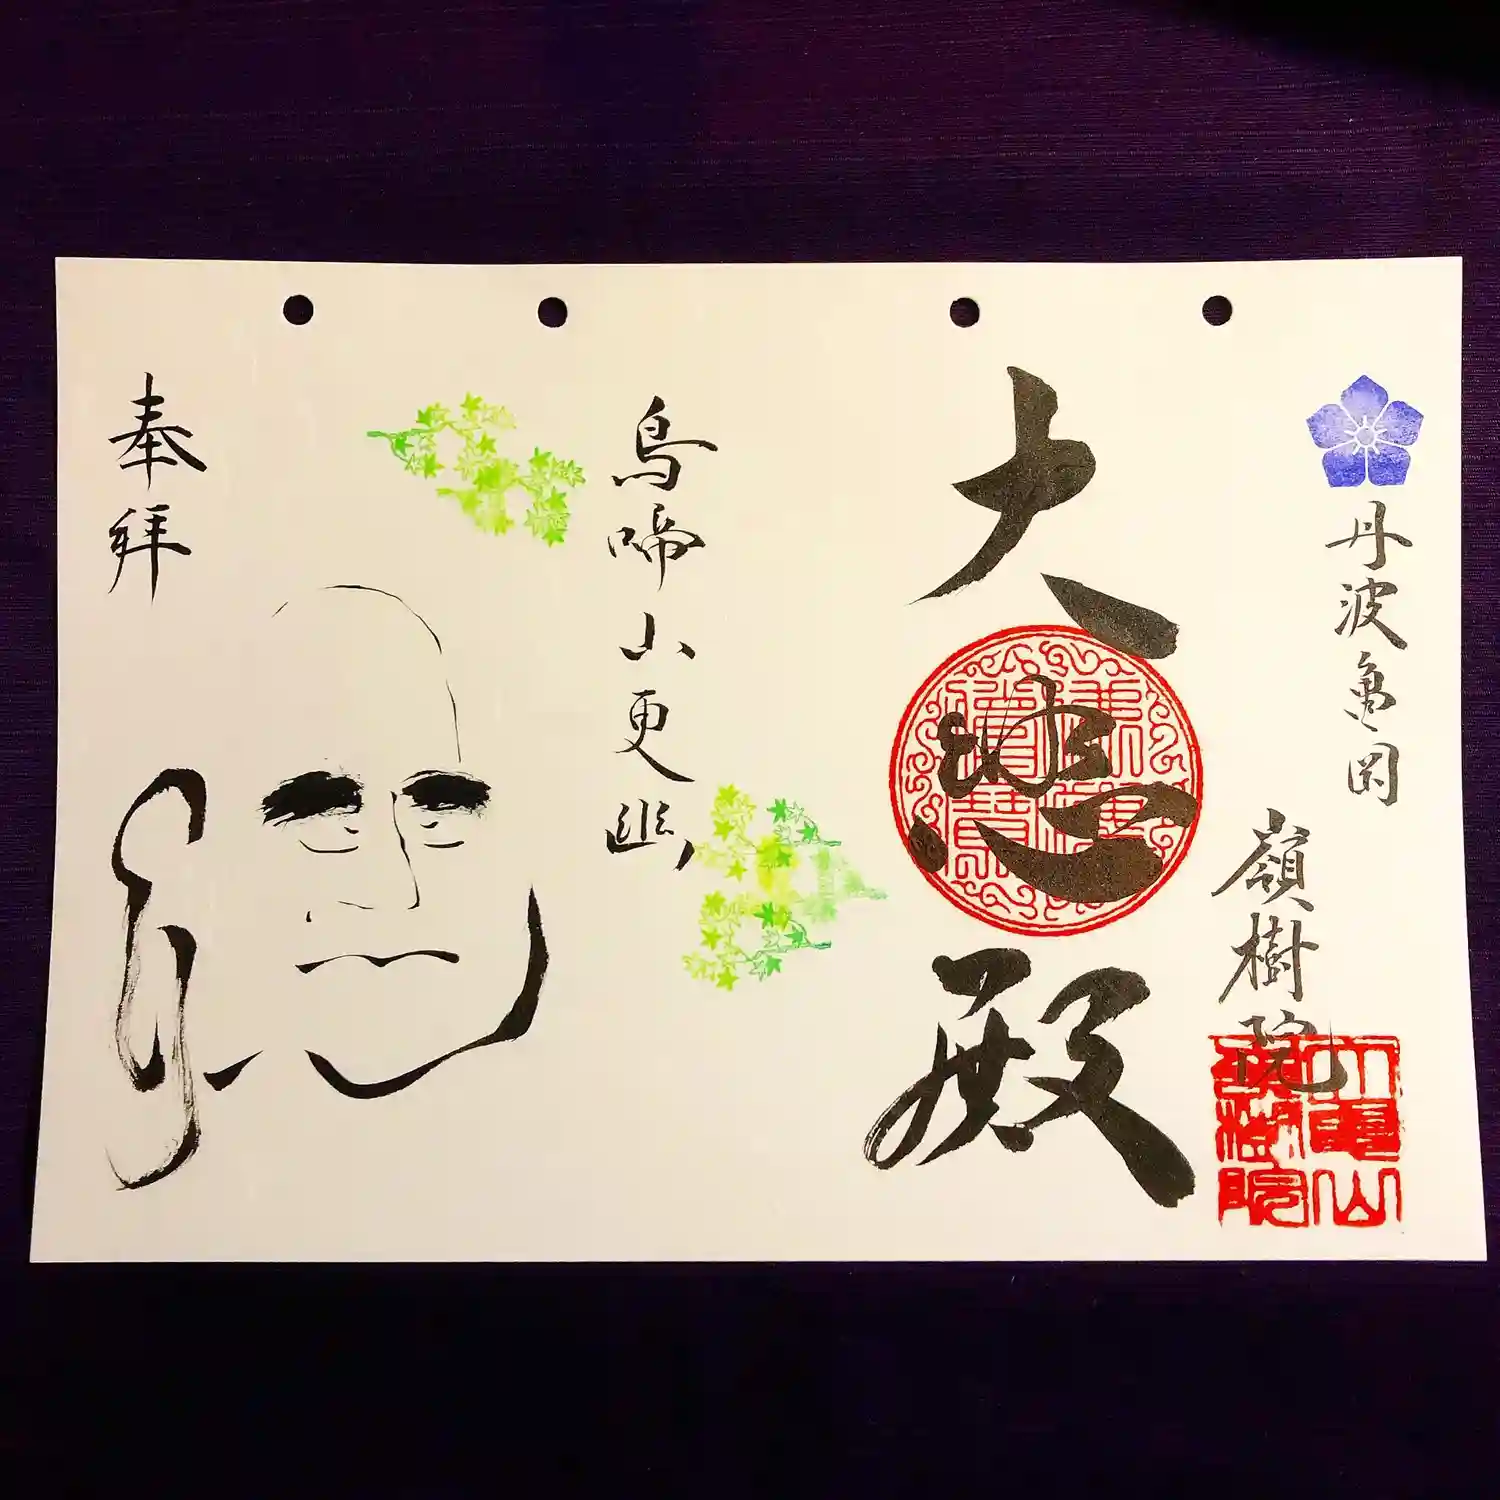 丹波亀岡
嶺樹院
大悲殿
鳥啼山更幽
奉拜
大亀山
嶺樹院